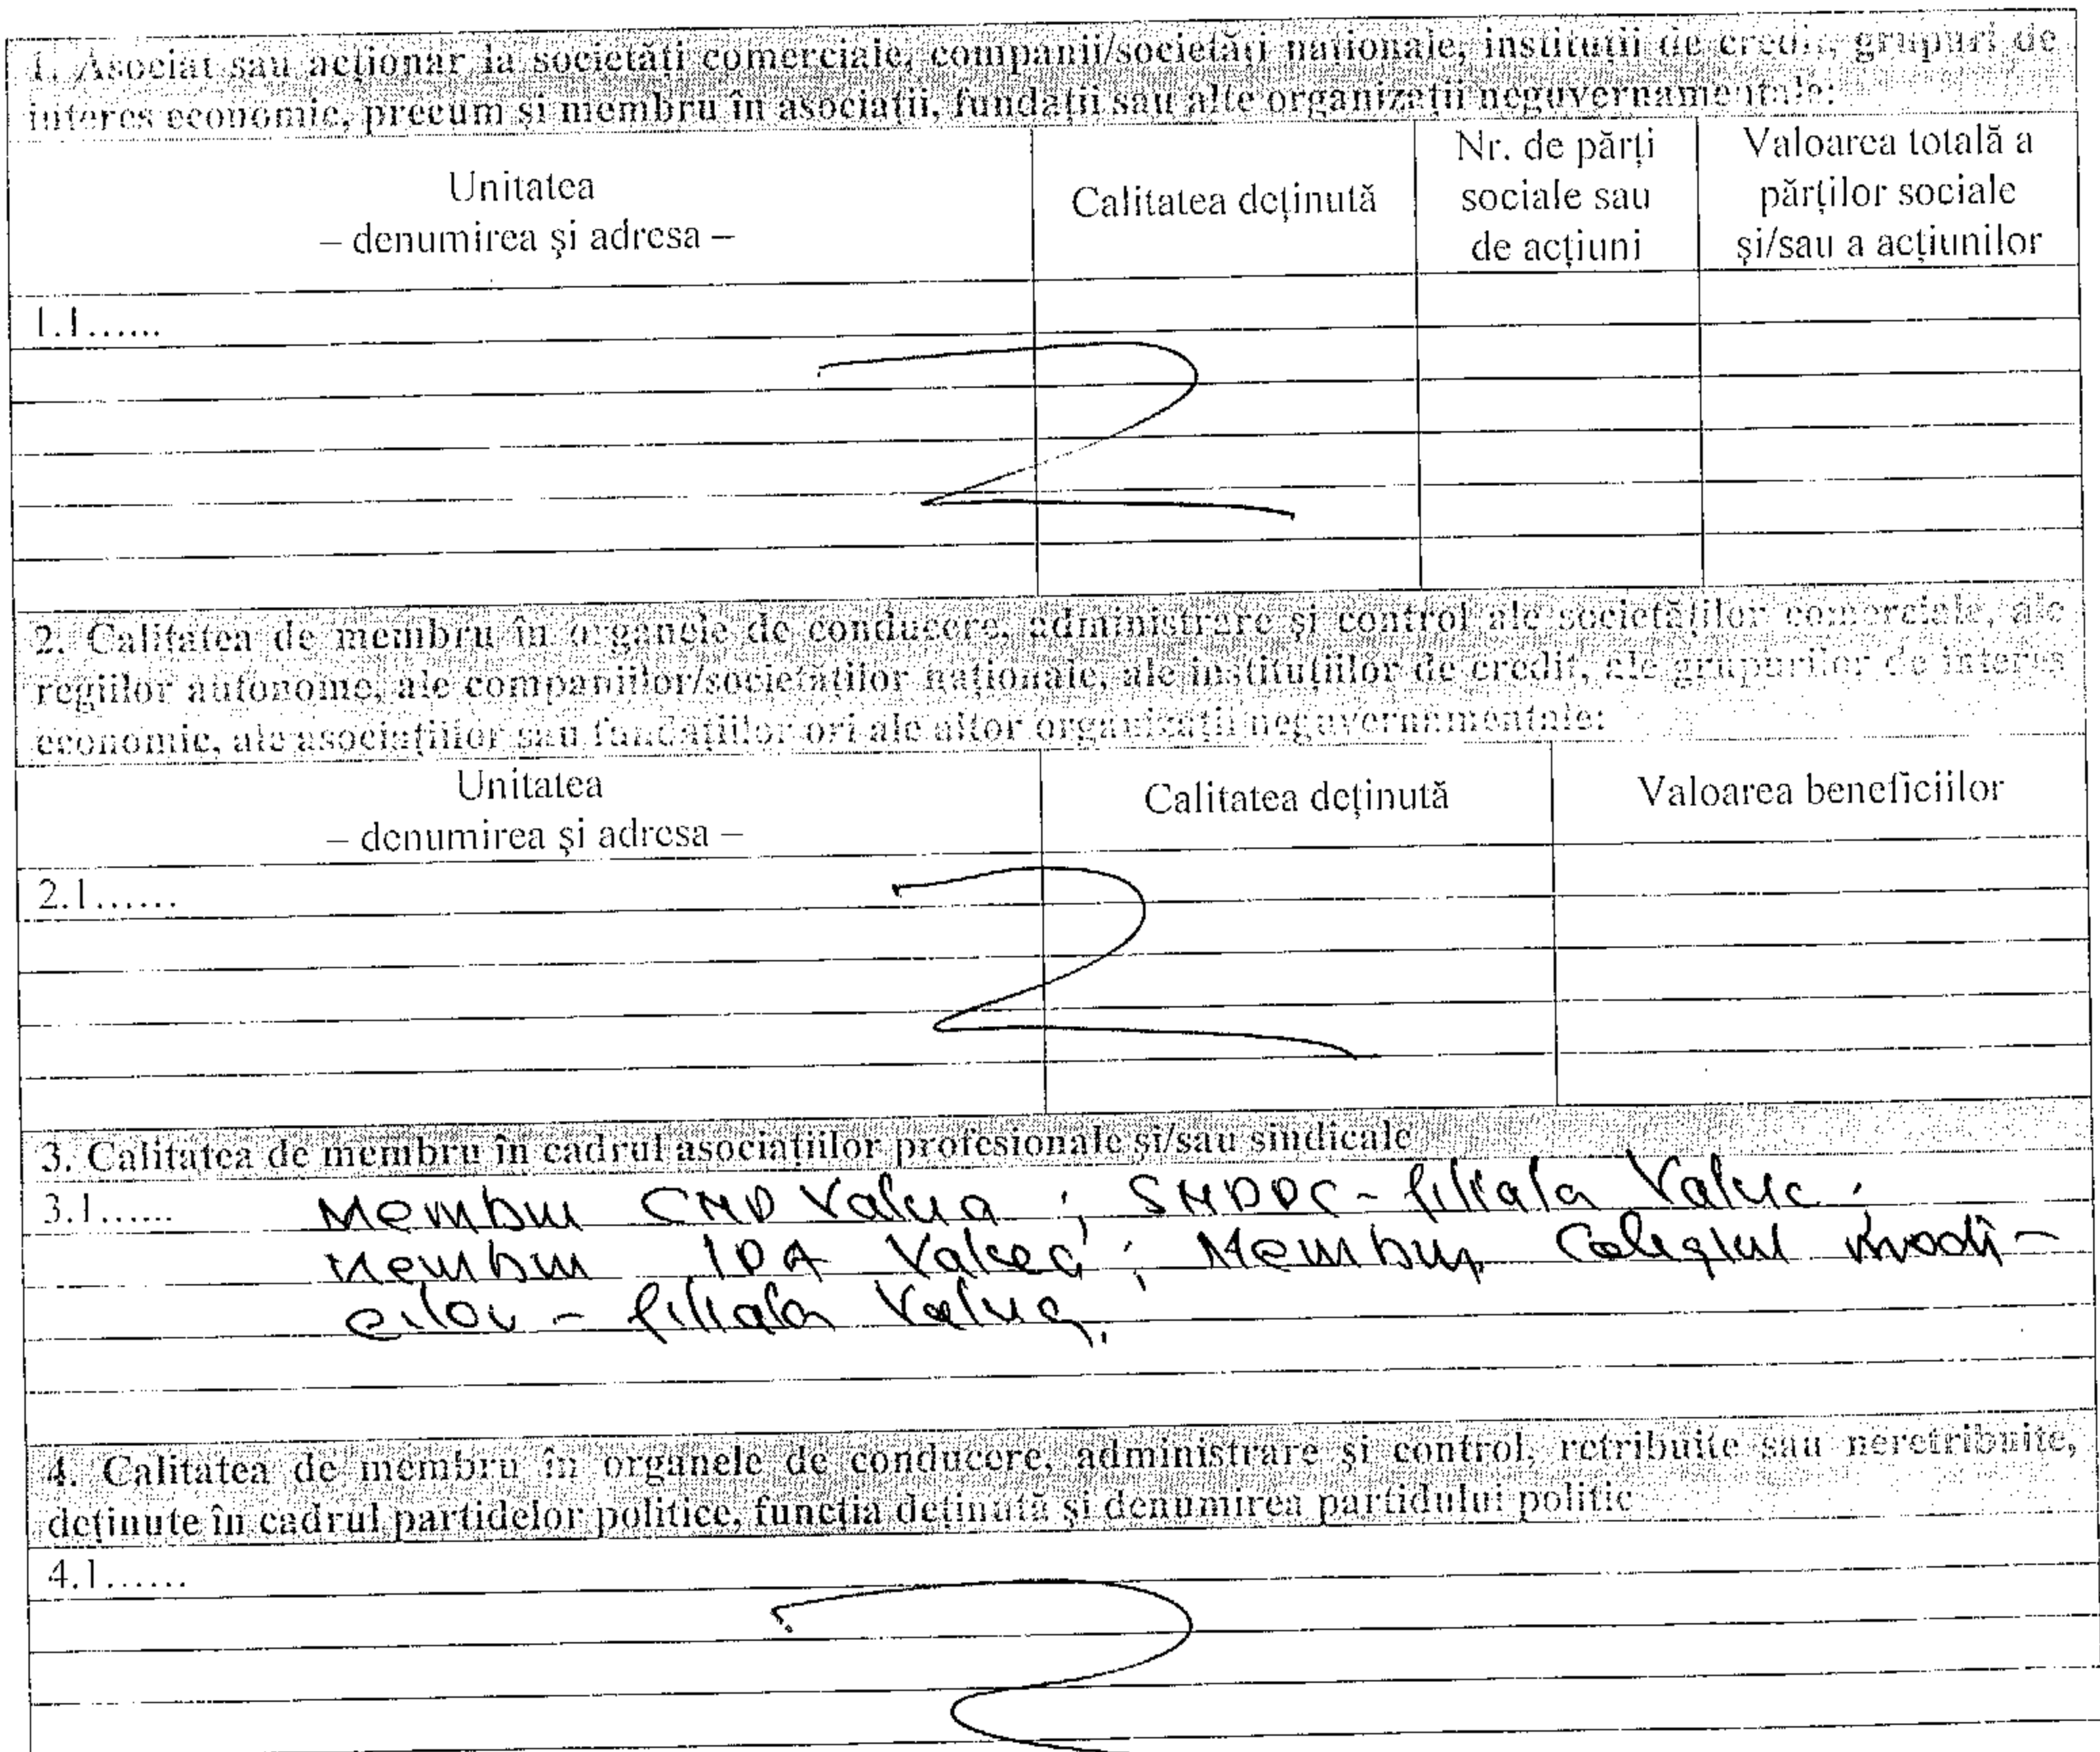 1. Asociat sau acționar la societăți comerciale, companii/societăți naționale, instituții de credit, grupuri de
interes economic, precum și membru în asociații, fundații sau alte organizații neguvernamentale:
Unitatea
– denumirea și adresa –
Calitatea deținută
Nr. de părți
sociale sau
de acțiuni
Valoarea totală a
părților sociale
și/sau a acțiunilor
1.1......
2. Calitatea de membru în organele de conducere, administrare și control ale societăților comerciale, ale
regiilor autonome, ale companiilor/societăților naționale, ale instituțiilor de credit, ale grupurilor de interes
economic, ale asociațiilor sau fundațiilor ori ale altor organizații neguvernamentale:
Unitatea
– denumirea și adresa –
Calitatea deținută
Valoarea beneficiilor
2.1......
3. Calitatea de membru în cadrul asociațiilor profesionale și/sau sindicale
3.1...... Membru Valcea ; - filiala Valcea ;
Membru Valcea ; Membru Colegiul medi-
cilor - filiala Valcea.
4. Calitatea de membru în organele de conducere, administrare și control, retribuite sau neretribuite,
deținute în cadrul partidelor politice, funcția deținută și denumirea partidului politic
4.1......